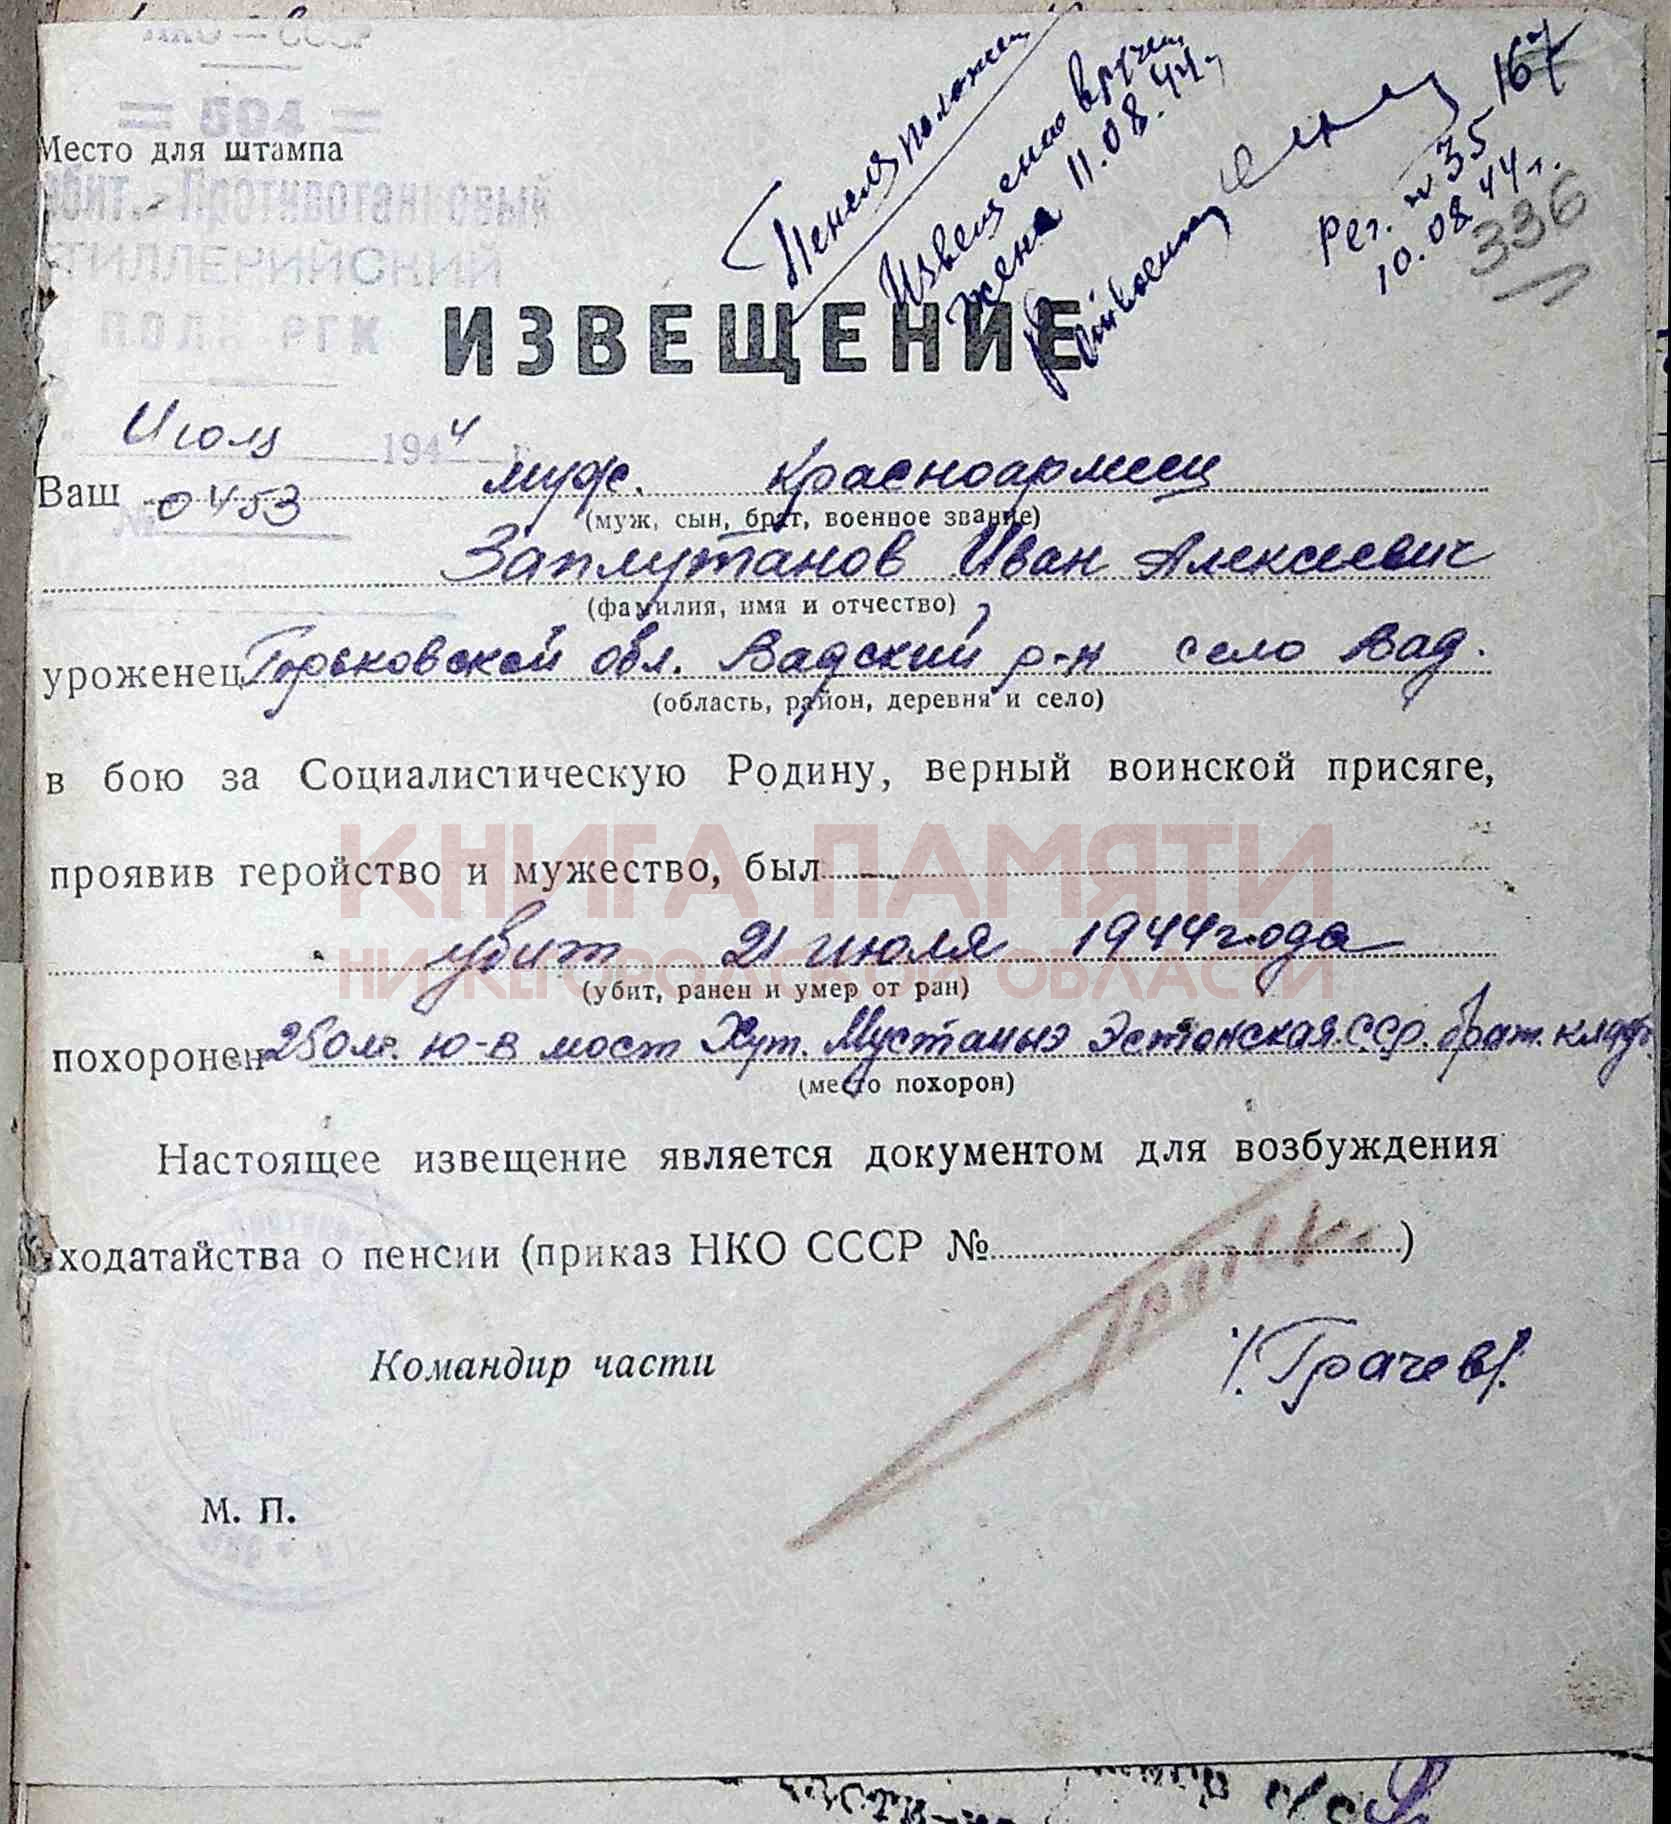 НКО — СССР
= 504 =
Место для штампа
Противотанковый
ТИЛЛЕРИЙСКИЙ
ПОЛК РГК
Извещение вручен
жена 11.08.44 г.
167
Рег. № 35
10.08.44 г.
336
ИЗВЕЩЕНИЕ
Июля 1944 г.
Ваш муж. красноармеец
№ 0453
(муж, сын, брат, военное звание)
Заплутанов Иван Алексеевич
(фамилия, имя и отчество)
уроженец Горьковской обл. Вадский р-н село Вад.
(область, район, деревня и село)
в бою за Социалистическую Родину, верный воинской присяге,
КНИГА ПАМЯТИ
проявив геройство и мужество, был
убит 21 июля 1944 года
НИЖЕГОРОДСКОЙ ОБЛАСТИ
(убит, ранен и умер от ран)
похоронен 250 м. ю-в мост Хут. Мустаныэ Эстонская ССР. брат. кладб.
(место похорон)
Настоящее извещение является документом для возбуждения
ходатайства о пенсии (приказ НКО СССР № )
Командир части /Грачев/.
М. П.